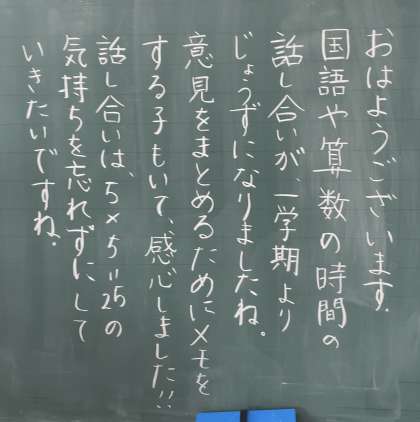 おはようございます.
国語や算数の時間の
話し合いが、一学期より
じょうずになりましたね。
意見をまとめるためにメモを
する子もいて、感心しました!!
話し合いは、5×5=25の
気持ちを忘れずにして
いきたいですね.